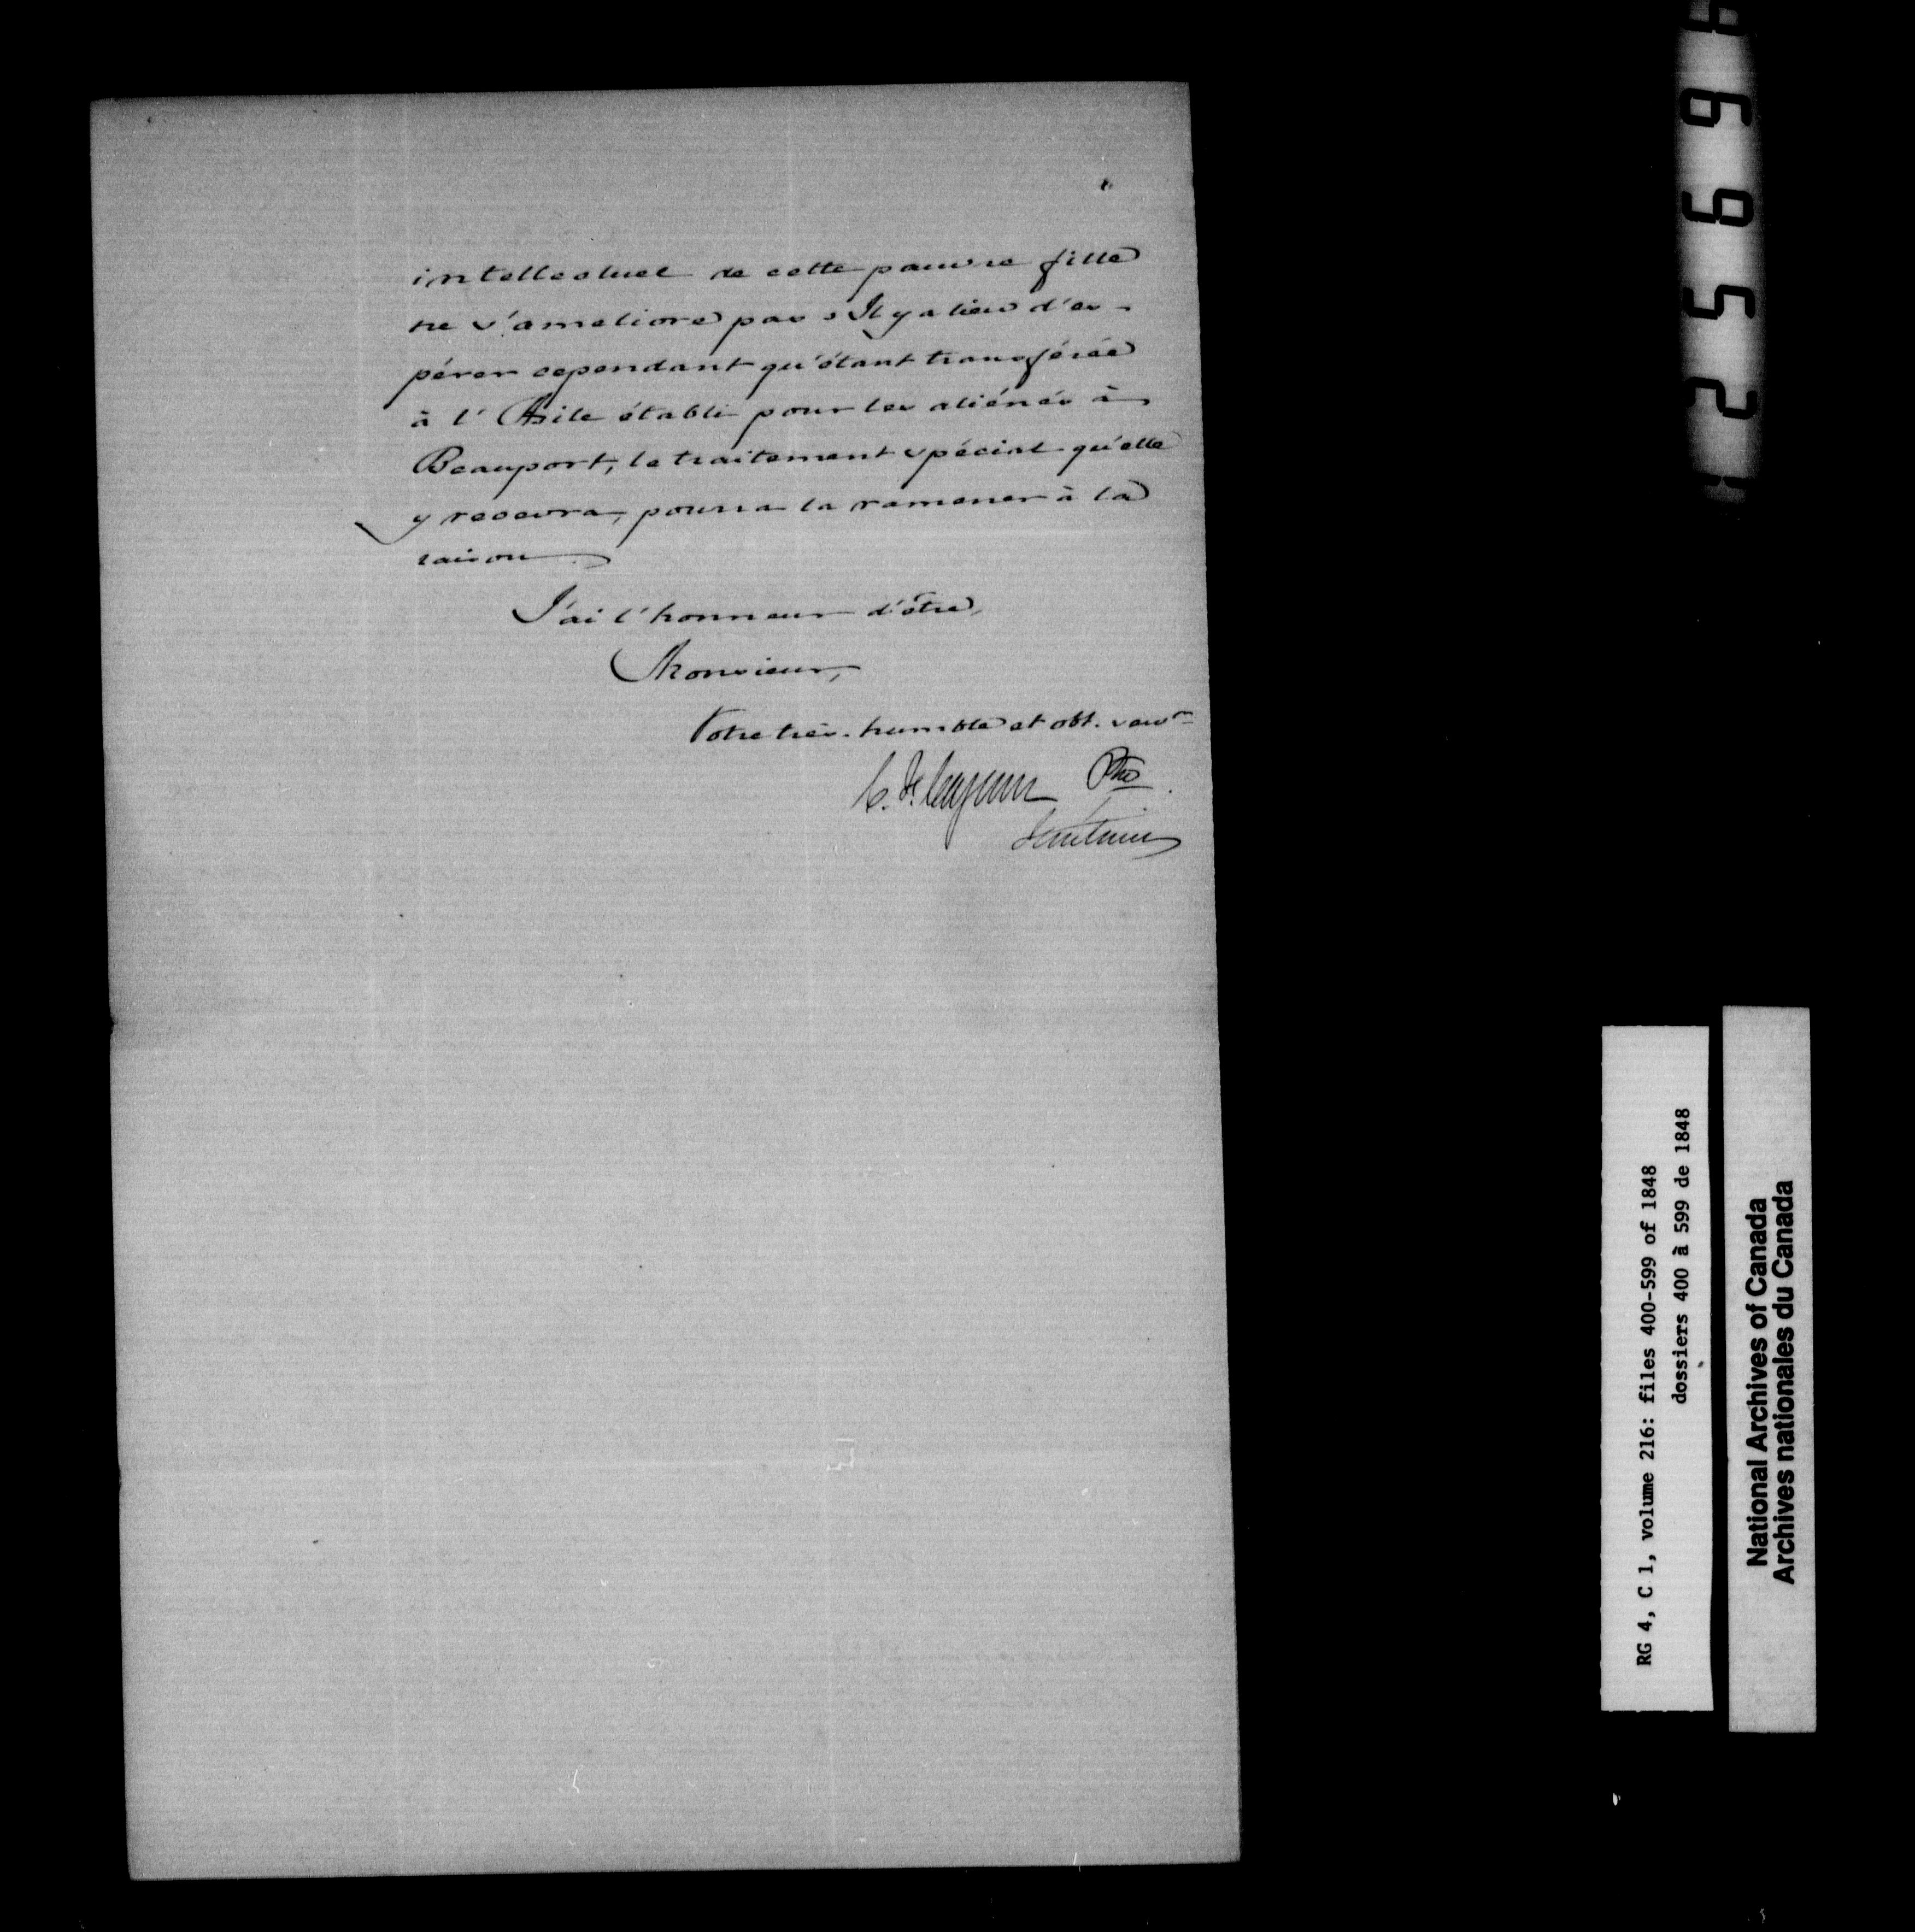 intellectuel de cette pauvre fille
ne s'ameliore pas. Il y a lieu d'es-
pérer cependant qu'étant transférée
à l'Asile établi pour les aliénés à
Beauport, le traitement spécial qu'elle
y recevra, pourra la ramener à la
raison.
J'ai l'honneur d'être,
Monsieur,
Votre très-humble et obt. servr
C. F. Cazeau Ptre
Secrétaire
RG 4, C 1, volume 216: files 400-599 of 1848
dossiers 400 à 599 de 1848
National Archives of Canada
Archives nationales du Canada